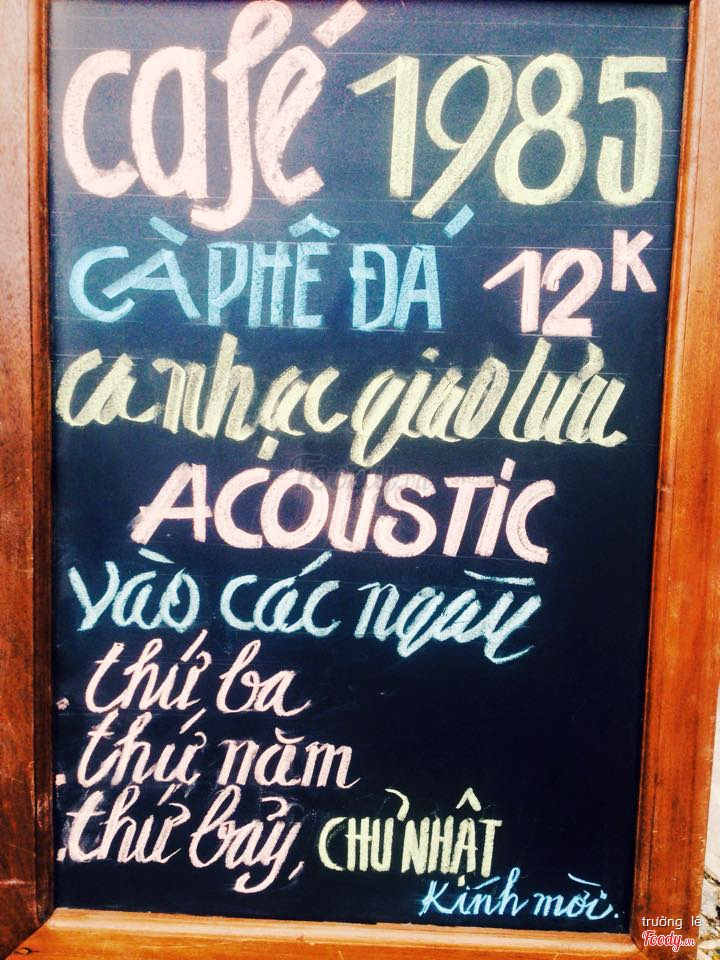 Café 1985
CÀ PHÊ ĐÁ 12K
ca nhạc giao lưu
ACOUSTIC
vào các ngày
. thứ ba
. thứ năm
. thứ bảy, CHỦ NHẬT
Kính mời.
trường lê
Foody.vn